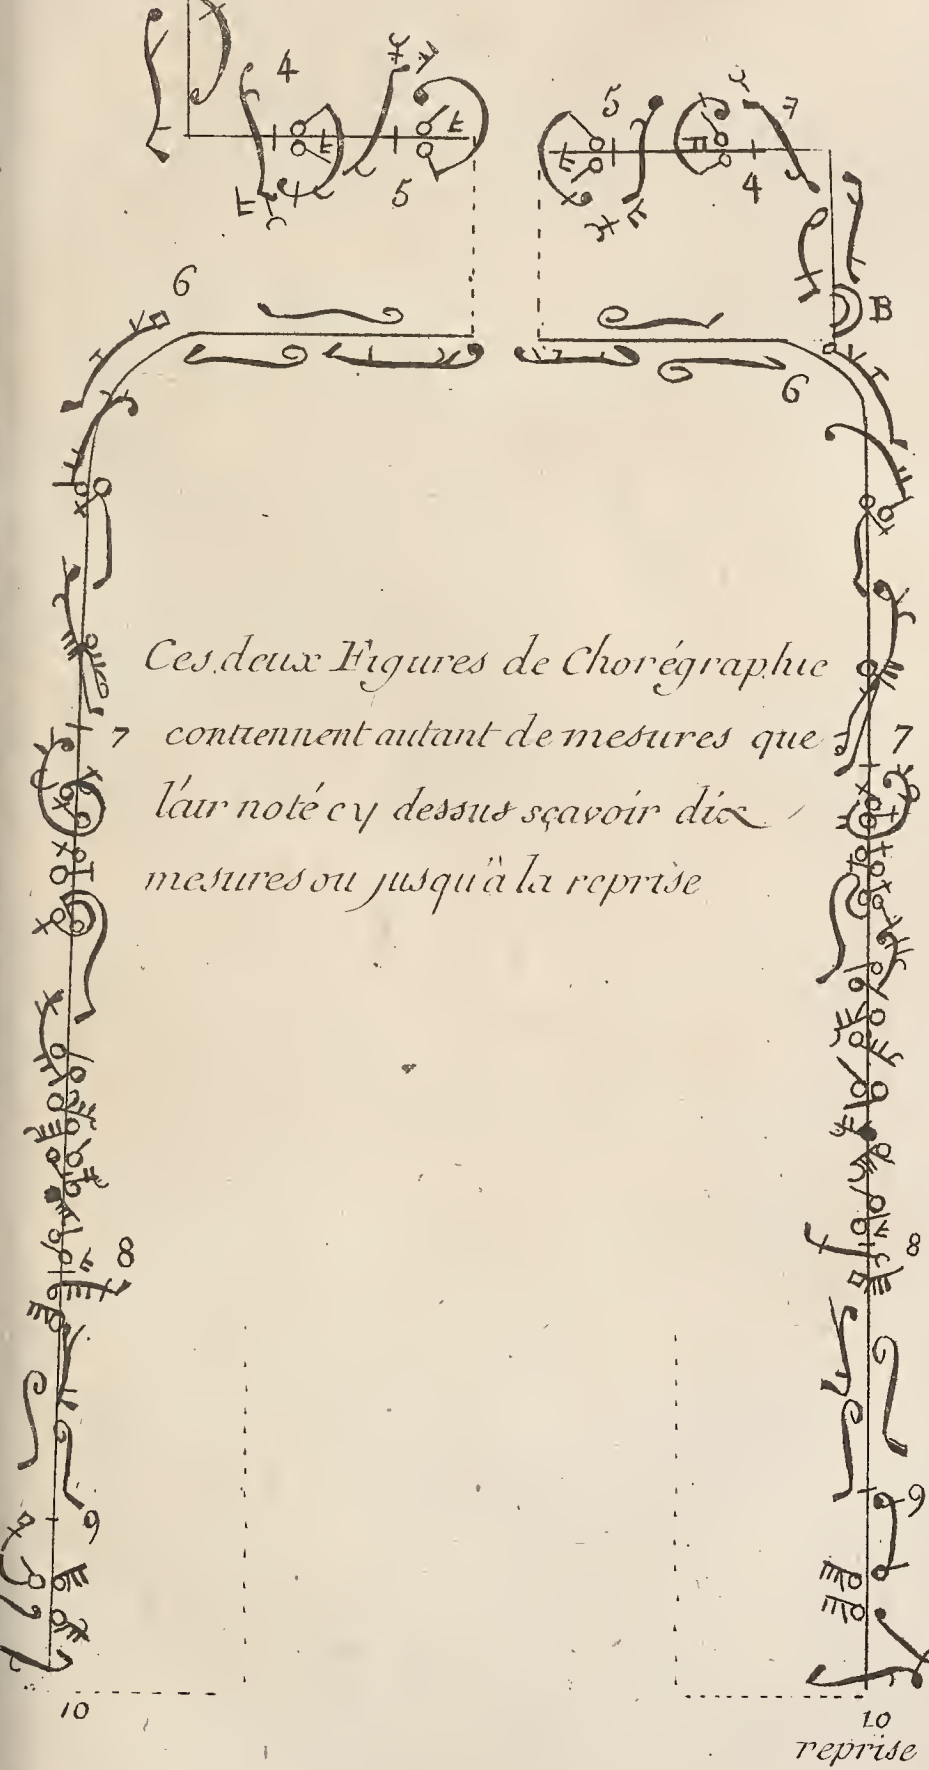 4
5
5
4
7
B
6
6
Ces deux Figures de Chorégraphie
7 contiennent autant de mesures que 7
l'air noté cy dessus sçavoir dix
mesures ou jusqu'à la reprise
8
8
9
9
10
10
reprise